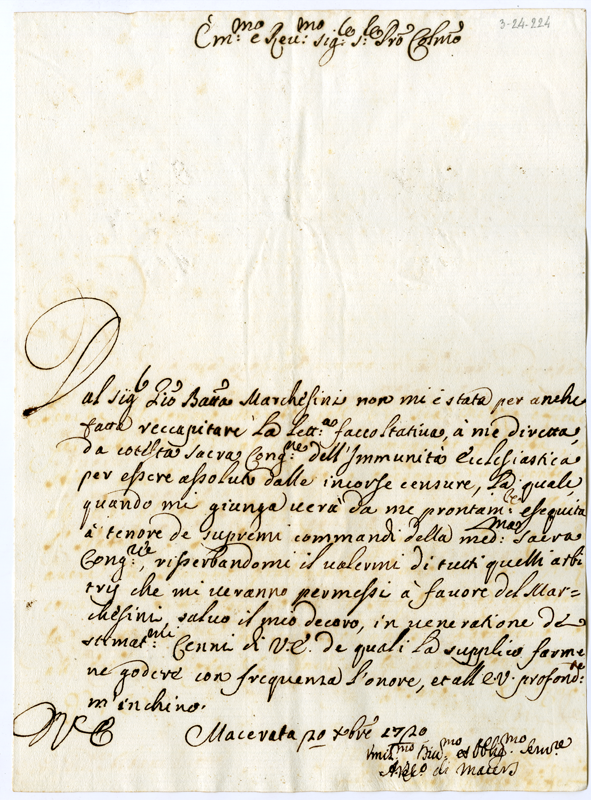 3-24-224
Em:mo e Reu:mo Sig:re Sig:re Prõn Colmo
Dal Sig:r Gio Batta Marchesini non mi è stata per anche
fatta reccapitare la lett:ra faccoltatiua, à me diretta,
da cotesta Sacra Cong:ne dell'Immunità Ecclesiastica
per essere assoluto dalle incorse censure, la quale,
quando mi giunga uerà da me prontam:te esequita
à tenore de supremi commandi della med:ma Sacra
Cong:ne, risserbandomi il ualermi di tutti quelli arbi
trij che mi ueranno permessi à fauore del Mar=
chesini, saluo il mio decoro, in ueneratione de
stimat:mi Cenni di V.E. de quali la supplico farme
ne godere con frequenza l'onore, et all'E.V. profond:te
m'inchino.
Macerata 20 xbre 1720
Vmil:mo Diu:mo et Obblig:mo Seru:re
di Macer